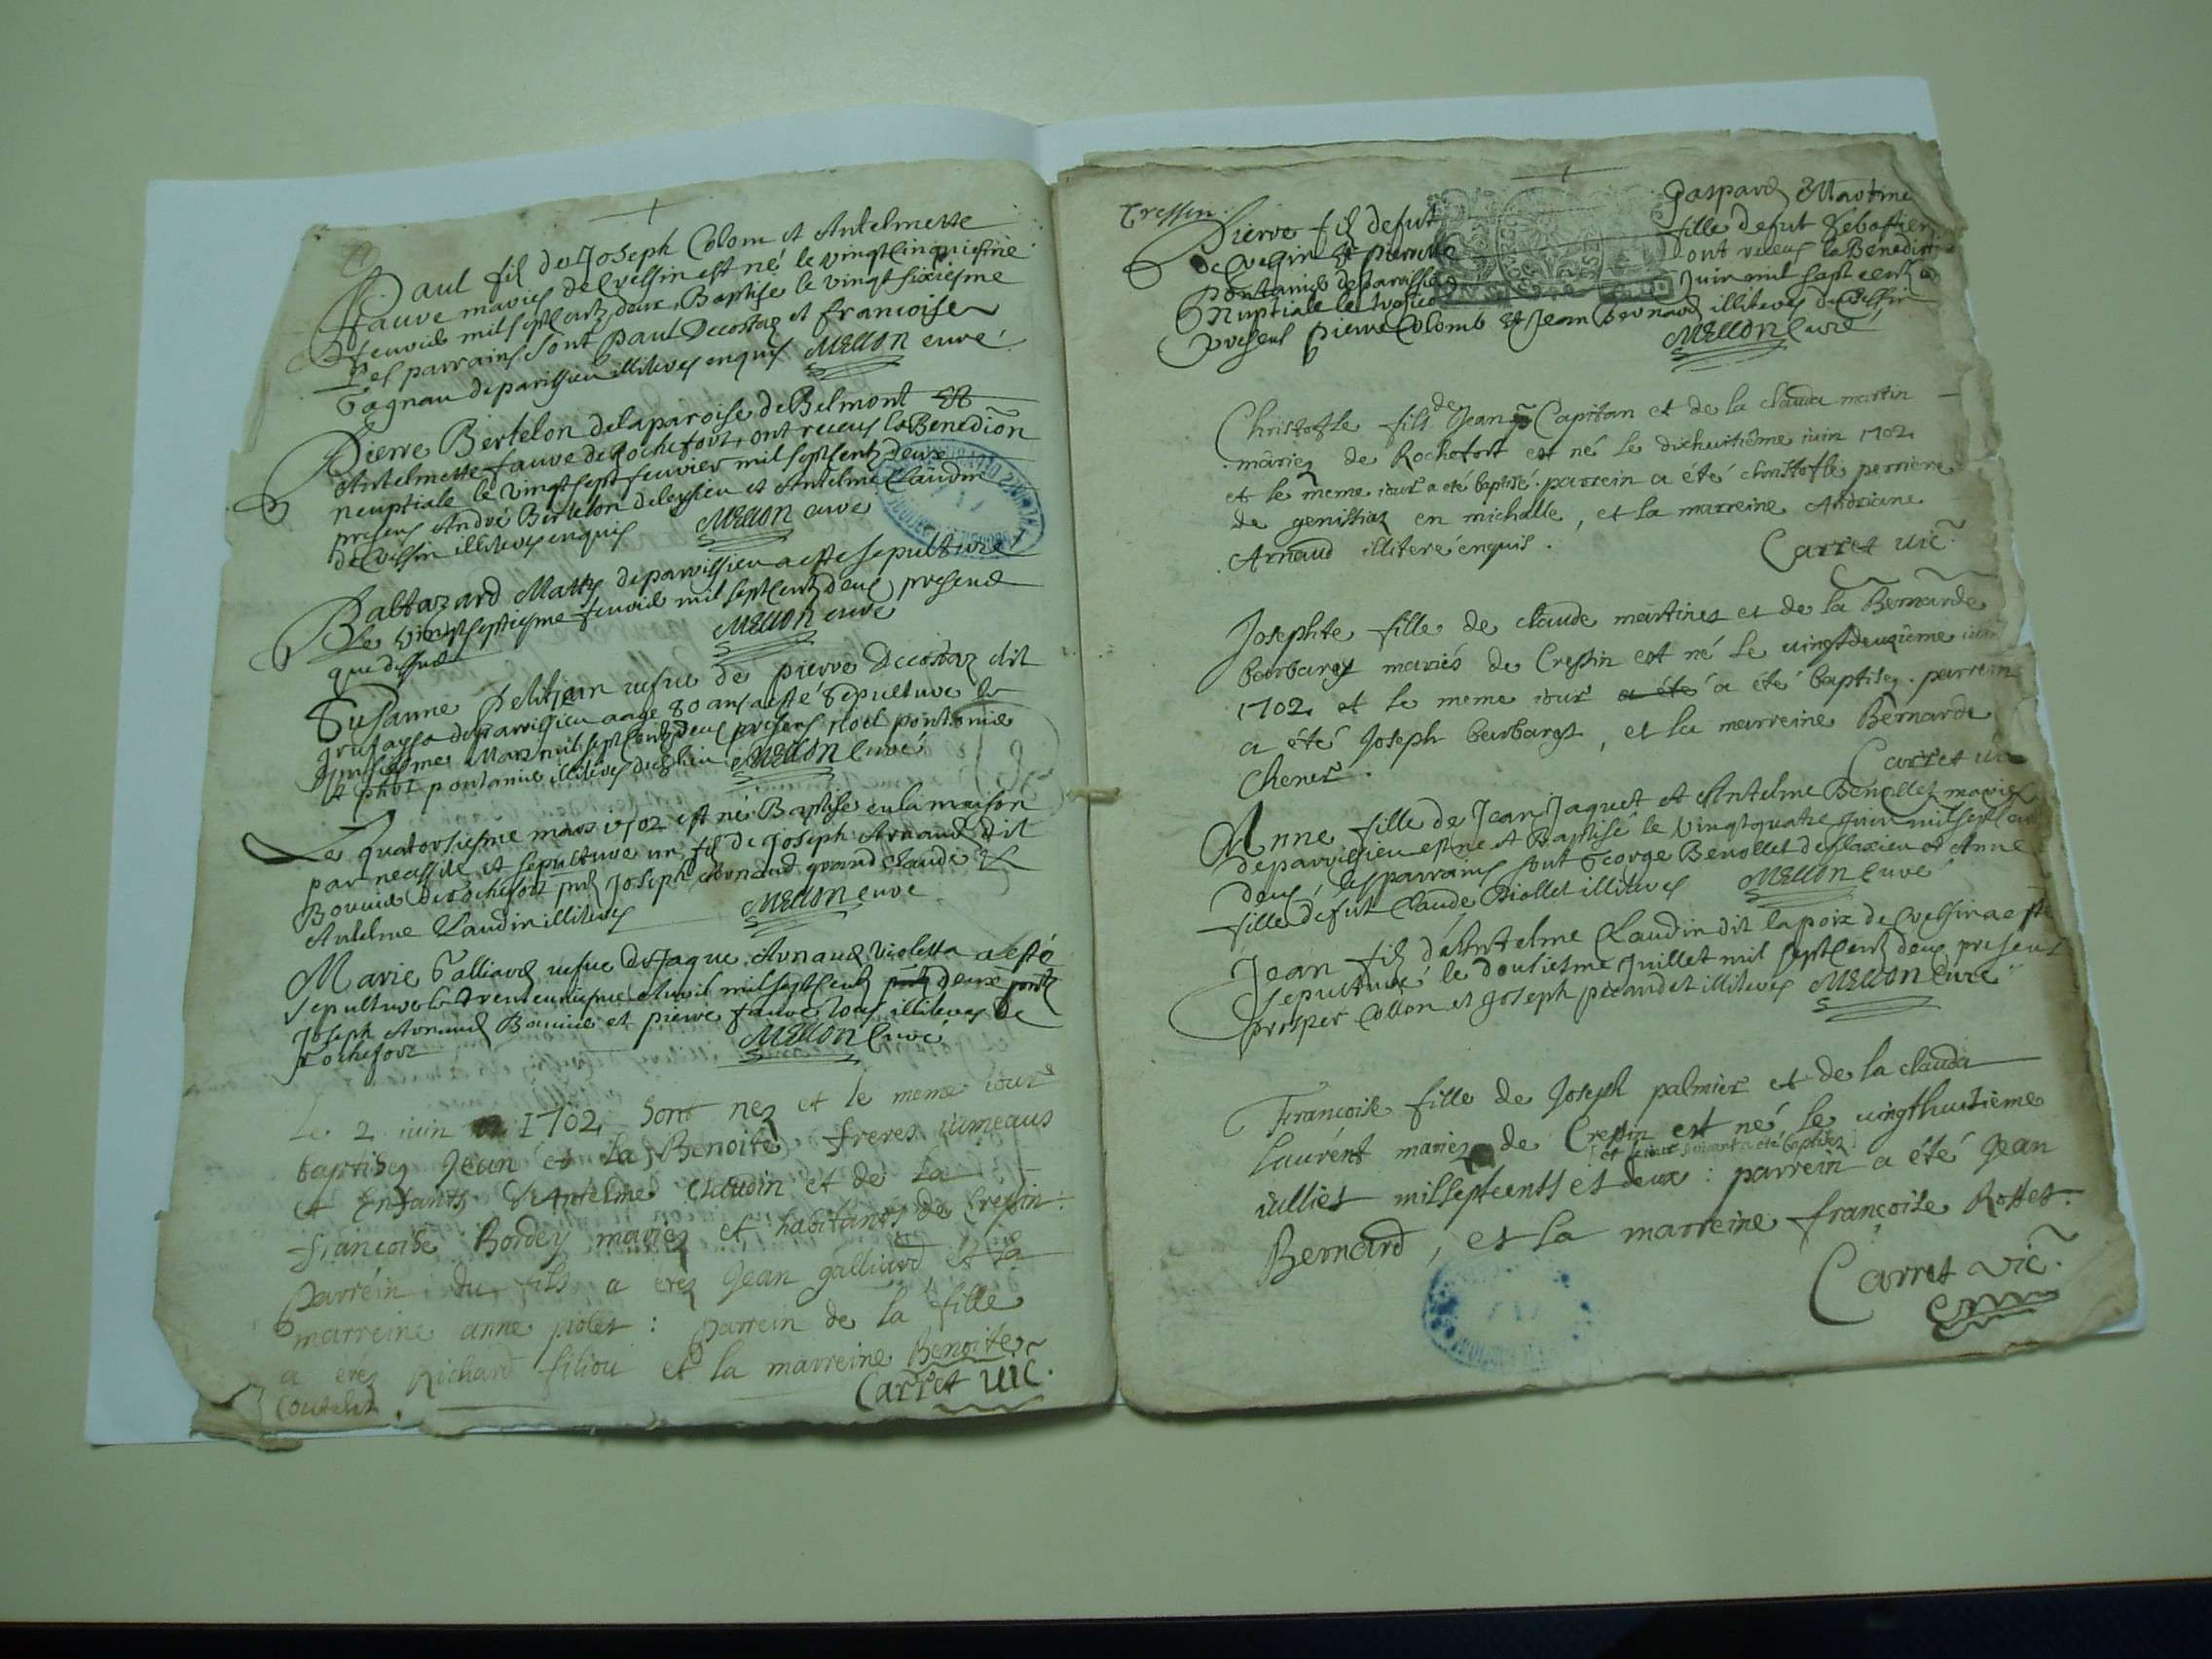 Paul fils de Joseph Colom et Antelmette
fauve mariés de Cressin est né le vingtcinquiesme
feuvrié mil sept centz deux, Baptise le vingt sixiesme
Les parrains sont Paul Decostaz et francoise
Tagnau de parissieu illiteres enquis Mellon curé
Pierre Bertelon de la paroise de Belmont et
Antelmette fauve de Rochefort, ont receus la Benedion
neuptiale le vingt sept feuvrier mil sept centz deux
presens André Bertelon de leysieu et Antelme Claudin
de Cressin illiteres enquis Mellon curé
Baltazard Matty de parvissieu a esté sepulturé
le vingtseptiesme feuvrié mil sept centz deux presens
que dessus Mellon curé
Susanne Petitjean vefue de pierre Decostaz dit
de parvissieu aagé 80 ans a esté sepulturé le
Mars mil sept centz deux presens Noel pontanié
et phot pontanié illiteres dudit lieu Mellon curé
Le quatorsiesme mars 1702 est né Baptise en la maison
par necessité et sepulturé un fils de Joseph Arnaud dit
Bouvié de Rochefort puls Joseph Arnaud grand claude &
Antelme Claudin illiteres Mellon curé
Marie Talliard vefue de Jaque Arnaud violetta a esté
sepulturé le trenteuniesme Auvil mil sept centz deux
Joseph Arnaud Bouvié et pierre fauve tous illiteres de
Rochefort Mellon Curé
Le 2 iuin 1702 sont nez et le meme iour
baptisez Jean et la Benoite freres iumeaus
et Enfants d'Antelme Claudin et de la
francoise Bordey mariez et habitants de Cressin :
Parrein du fils a etez Jean galliard et la
marreine anne piolet : parrein de la fille
a etez Richard filiou et la marreine Benoite
Coutelet . Carret vic.
Cressin
Pierre fils de fut Gaspard Martine
de Cressin et pierrette fille de fut Sebastien
Pontanié de parvissieu ont receus la Benedion
Nuptiale le troisie Juin mil sept centz d
presens pierre Colomb et Jean Bernard illiteres de Cressin
Mellon Curé
Christofle fils de Jean Capitan et de la clauda martin
mariez de Rochefort est né le dixhuitième iuin 1702
et le meme iour a eté baptisé. parrein a été christofle perriere
de genissiaz en michalle, et la marreine Andriane
Arnaud illiteré enquis . Carret vic.
Josephte fille de claude martinet et de la Bernarde
barbaret mariés de Cressin est né le vingtdeuxième iuin
1702 et le meme iour a été a été baptisez. parrein
a été Joseph barbaret, et la marreine Bernarde
Chener . Carret vic
Anne fille de Jean Jaquet et Antelme Benollet mariez
de parvissieu est né et Baptisé le vingtquatre juin mil sept cent
deux, les parrains sont George Benollet de flaxieu et Anne
fille de fut Claude Diollet illiteres Mellon Curé
Jean fils d'Antelme Claudin dit lapoix de Cressin a esté
sepulturé le dousiesme Juillet mil sept centz deux presens
prosper Collon et Joseph picandet illiteres Mellon Curé
Francoise fille de Joseph palmier et de la clauda
laurént mariez de Cressin est né le vingthuitième
et le iour suivant a été baptisez
iulliet millseptcents et deux : parrein a été Jean
Bernard, et la marreine françoise Rosset.
Carret vic.